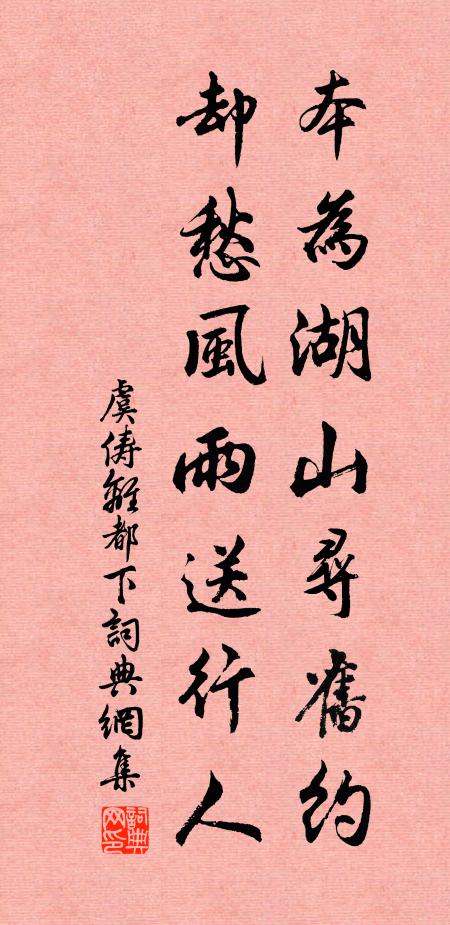 本為湖山尋舊約
却愁風雨送行人
虞儔離都下詞典網集
詞典网印